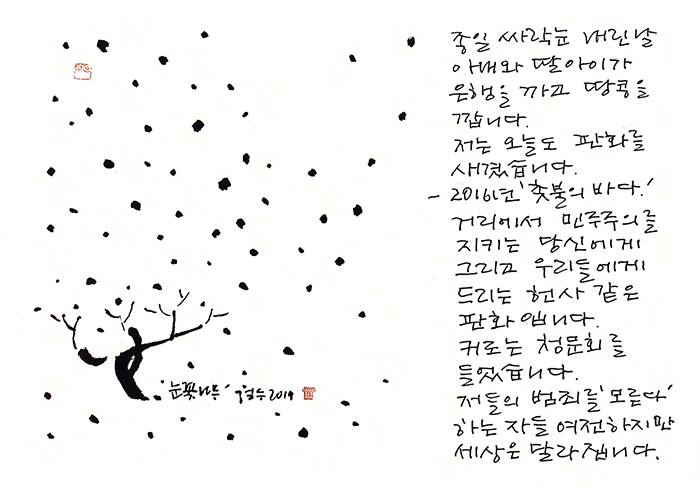 종일 싸락눈 내린날
아내와 딸아이가
은행을 까고 땅콩을
깝니다.
저는 오늘도 판화를
새겼습니다.
- 2016년 '촛불의 바다.'
거리에서 민주주의를
지키는 당신에게
그리고 우리들에게
드리는 헌사 같은
판화 입니다.
귀로는 청문회를
들었습니다.
저들의 범죄를 '모른다'
하는 자들 여전하지만
세상은 달라집니다.
'눈꽃나무' 2014